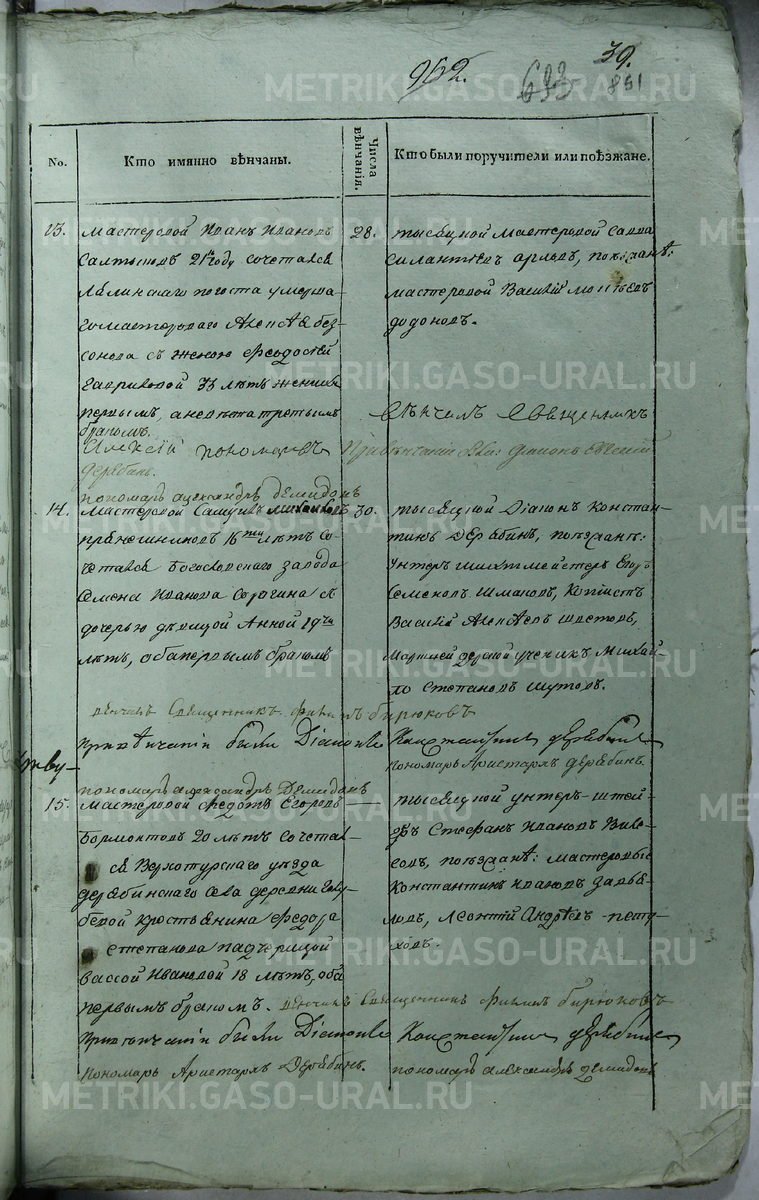 962.
39.
633
851
No.
Кто имянно вѣнчаны.
Числа вѣнчанія.
Кто были поручители или поѣзжане.
13. Мастеровой Иванъ Ивановъ
21 году сочетался
умерша
го мастероваго Алексѣя Без
сонова съ женою Феодосіей
Гавриловой 33 лѣтъ женихъ
первымъ, а невѣста третьимъ
бракомъ.
28. тысяцкой Мастеровой Савва
Силантьевъ поѣзжанѣ:
мастеровой Василій
Додоновъ.
Вѣнчалъ Священникъ
Пономарь Александръ Демидовъ
14. Мастеровой Михайловъ
16 лѣтъ со
четался Богословскаго завода
Семена Иванова съ
дочерью дѣвицой Анной 19
лѣтъ, оба первымъ бракомъ
30. тысяцкой Діаконъ Констан
тинъ Дерябинъ, поѣзжанѣ:
Унтеръ шихтмейстеръ Егоръ
Семеновъ Шмаковъ, Копіистъ
Василій Алексѣевъ
горной ученикъ Михай
ло Степановъ Шутовъ.
вѣнчалъ Священникъ Филипъ Бирюковъ
При вѣнчаніи были Діаконъ Константинъ Дерябинъ
Пономарь Аристархъ Дерябинъ.
пономарь Александръ Демидовъ
15. Мастеровой Федотъ Егоровъ
20 лѣтъ сочетал
ся Верхотурскаго уѣзда
Дерябинскаго села деревни Голу
бевой крестьянина Федора
Степанова падчерицой
Вассой Ивановой 18 лѣтъ, оба
первымъ бракомъ.
тысяцкой унтеръ-штей
Стефанъ Ивановъ
поѣзжанѣ: мастеровые
Константинъ Ивановъ Завья
ловъ, Леонтій Андрѣевъ Пету
ховъ.
вѣнчалъ Священникъ Филипъ Бирюковъ
При вѣнчаніи были Діаконъ Константинъ Дерябинъ
Пономарь Аристархъ Дерябинъ.
пономарь Александръ Демидовъ
METRIKI.GASO-URAL.RU